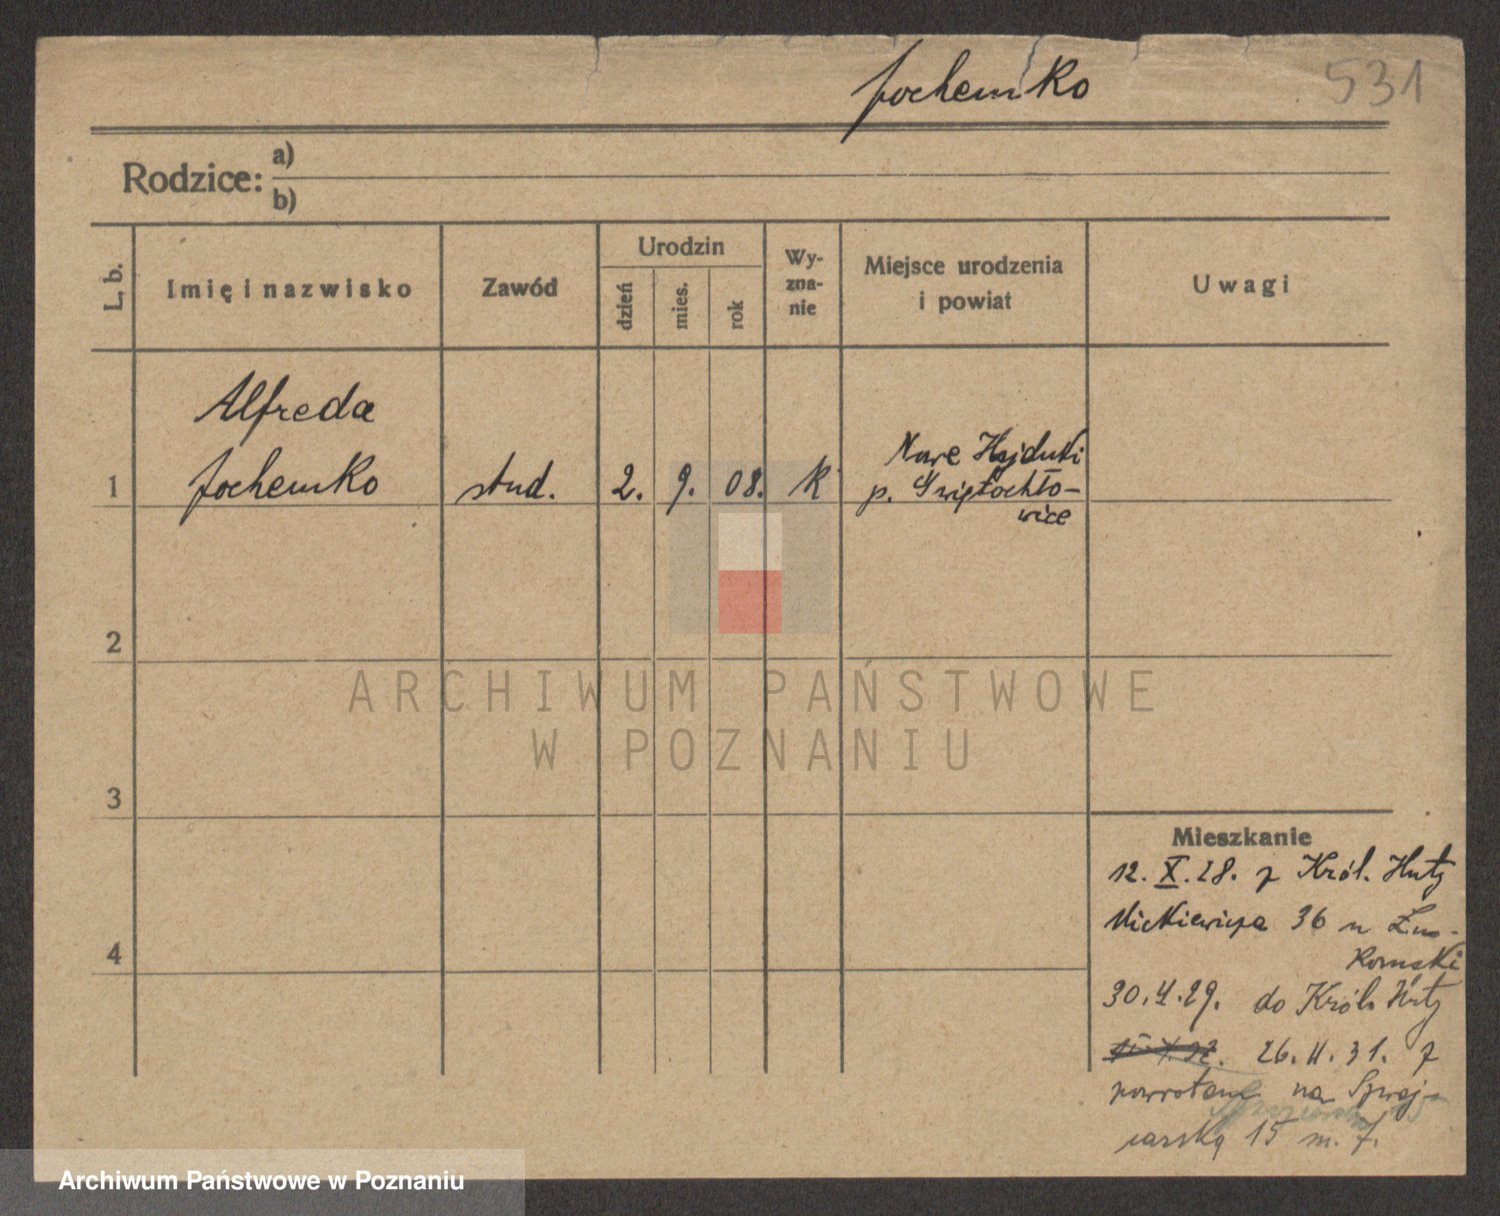 Jochemko 531
Rodzice: a)
b)
L. b. Imię i nazwisko Zawód Urodzin dzień mies. rok Wyznanie Miejsce urodzenia i powiat Uwagi
Alfreda
1 Jochemko stud. 2. 9. 08. k Nowe Hajduki
p. Świętochło-
wice
2
ARCHIWUM PAŃSTWOWE
W POZNANIU
3
Mieszkanie
12. X. 28. z Król. Huty
Mickiewicza 36 u Żu-
komski
4
30. 4. 29. do Król. Huty
26. II. 31. z
powrotem na Szwaj-
carską 15 m. 7.
Archiwum Państwowe w Poznaniu